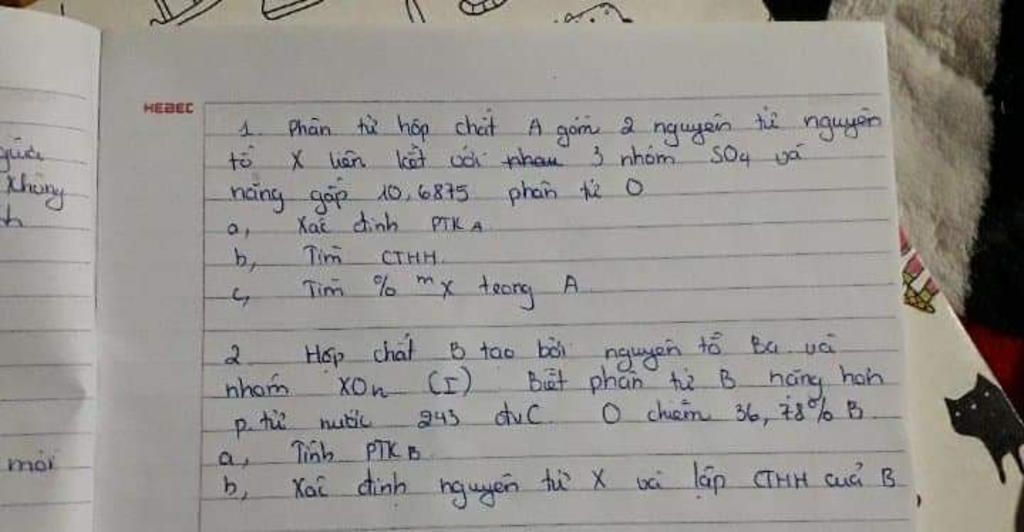 HEBEC
1. Phân tử hợp chất A gồm 2 nguyên tử nguyên
tố X liên kết với nhau 3 nhóm SO4 và
nặng gấp 10,6875 phân tử O
a, Xác định PTK A
b, Tìm CTHH
c, Tìm % mX trong A
2 Hợp chất B tạo bởi nguyên tố Ba và
nhóm XOn (I) Biết phân tử B nặng hơn
p. tử nước 243 đvC O chiếm 36,78% B
a, Tính PTK B
b, Xác định nguyên tử X và lập CTHH của B
giữa
không
h
mới